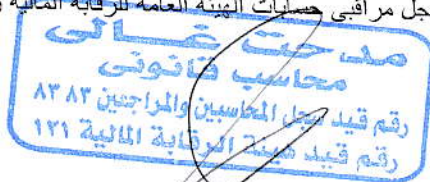 جل مراقبي حسابات الهيئة العامة للرقابة المالية
مدحت غالى
محاسب قانونى
رقم قيد سجل المحاسبين والمراجعين ٨٣٨٣
رقم قيد هيئة الرقابة المالية ١٢١